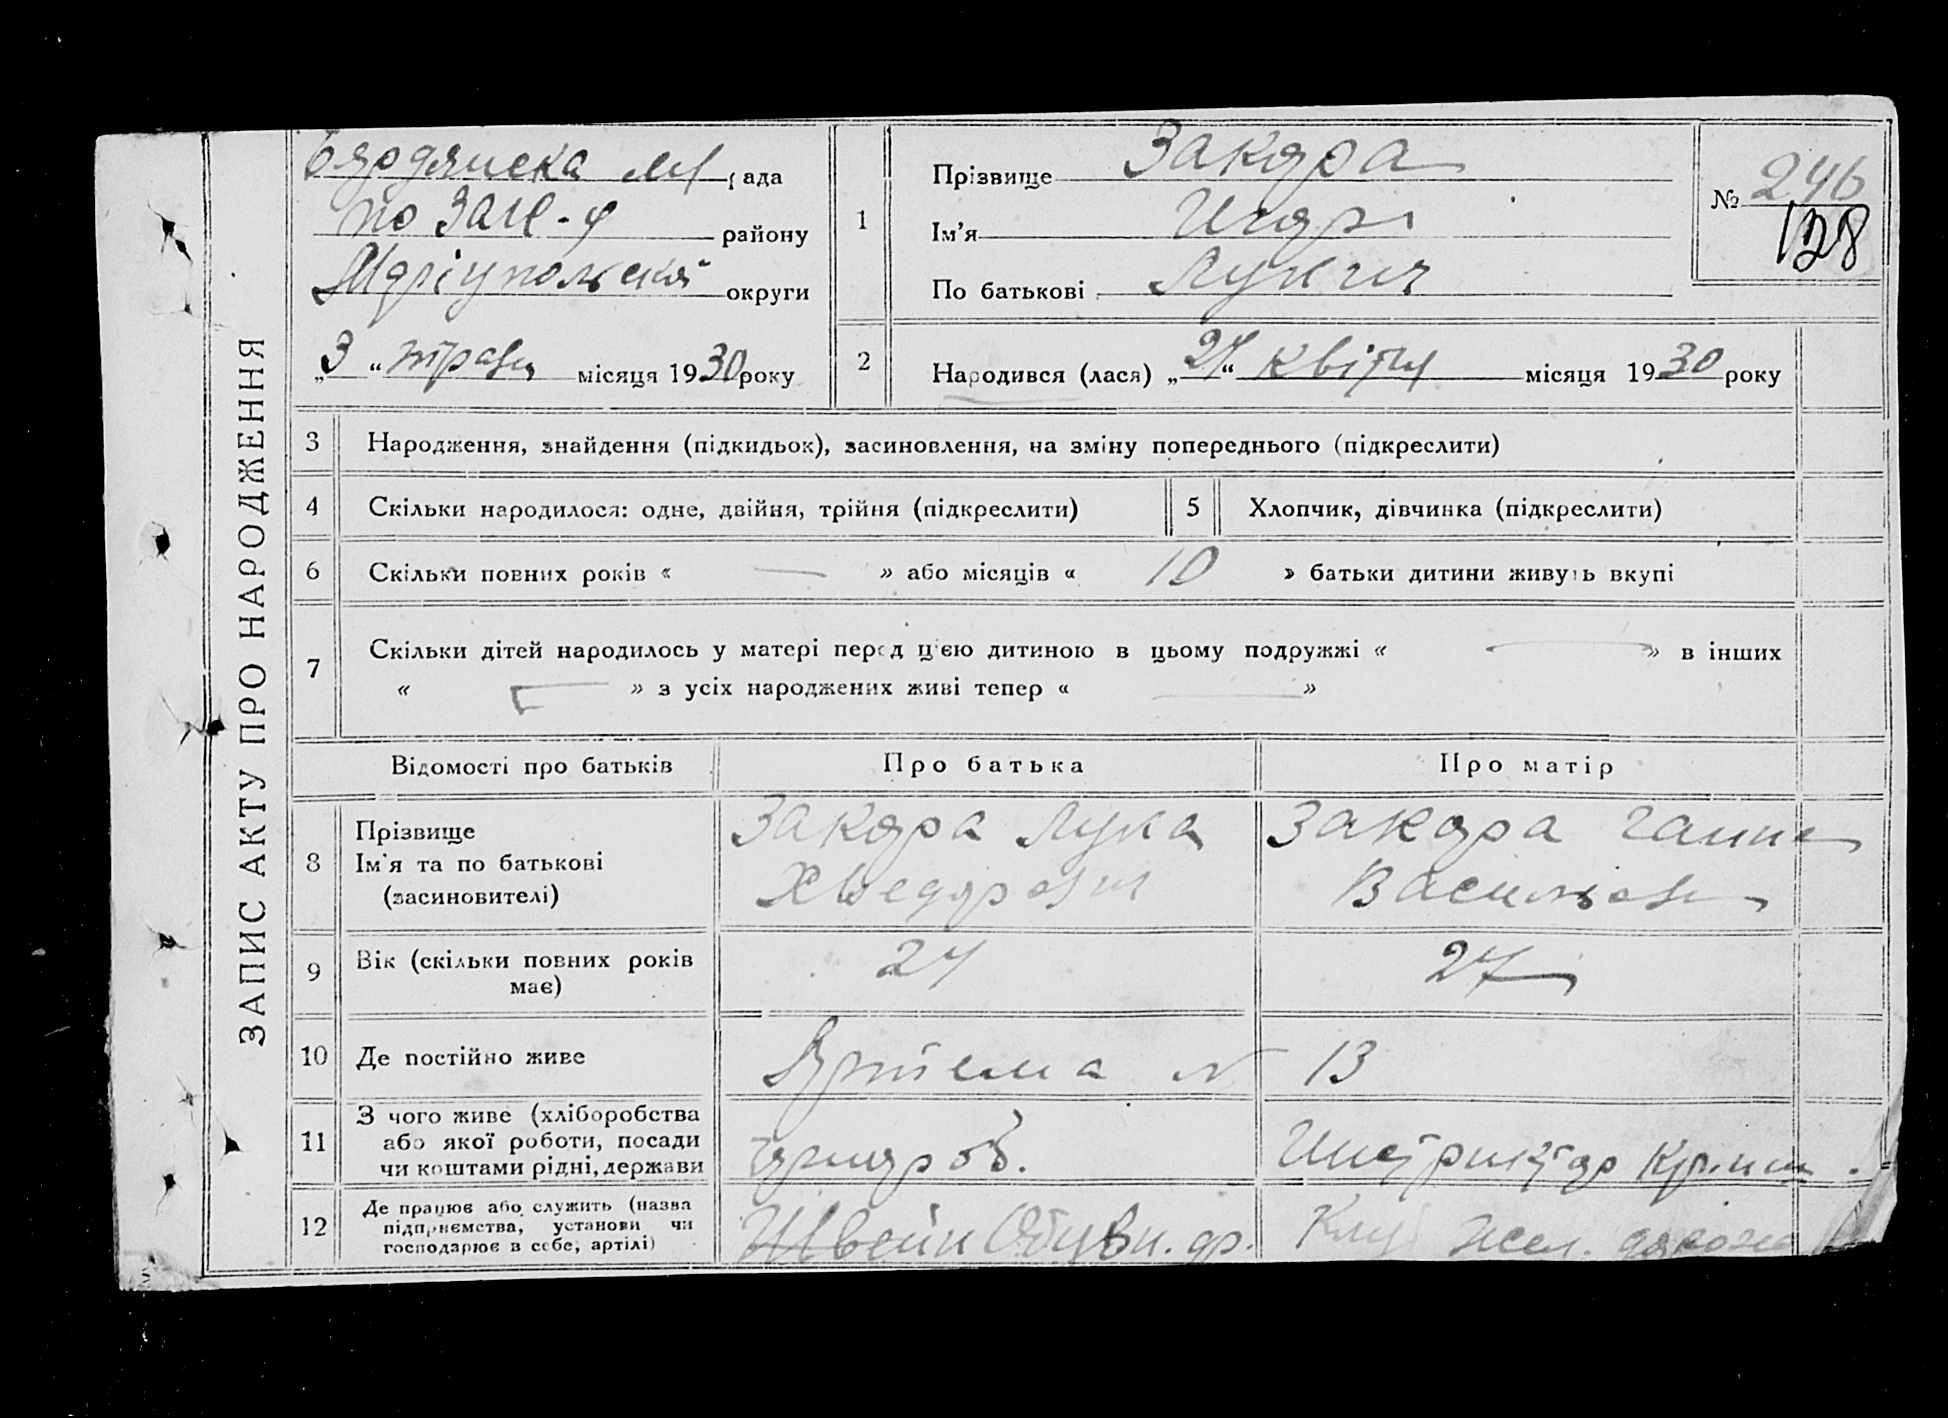 ЗАПИС АКТУ ПРО НАРОДЖЕННЯ
Бярдянска рада
по району
округи
„3“ травн місяця 1930 року
1
Прізвище Закора
Ім'я
По батькові Лукич
№ 246
128
2
Народився (лася) „27“ квітн місяця 1930 року
3 Народження, знайдення (підкидьок), засиновлення, на зміну попереднього (підкреслити)
4 Скільки народилося: одне, двійня, трійня (підкреслити) 5 Хлопчик, дівчинка (підкреслити)
6 Скільки повних років « — » або місяців « 10 » батьки дитини живуть вкупі
7 Скільки дітей народилось у матері перед цією дитиною в цьому подружжі « — » в інших
« — » з усіх народжених живі тепер « — »
Відомості про батьків Про батька Про матір
8
Прізвище
Ім'я та по батькові
(засиновителі)
Закора Лука
Хведорович
Закора Ганна
Васильовн
9 Вік (скільки повних років
має)
27
27
10 Де постійно живе Артема № 13
11
З чого живе (хліборобства
або якої роботи, посади
чи коштами рідні, держави
12
Де працює або служить (назва
підприємства, установи чи
господарює в себе, артілі)
Швейн Обувн. ф.
Клуб